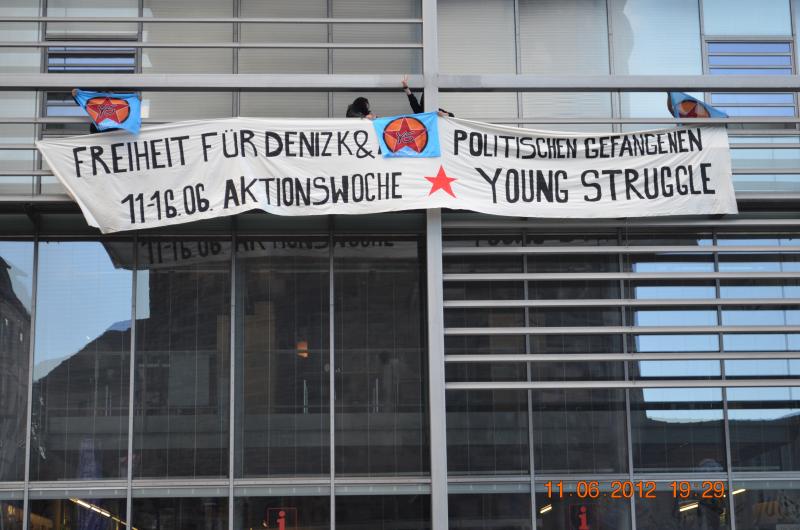 FREIHEIT FÜR DENIZ K & POLITISCHEN GEFANGENEN
11-16.06. AKTIONSWOCHE YOUNG STRUGGLE
YS
YS
i
i
11.06.2012 19:29